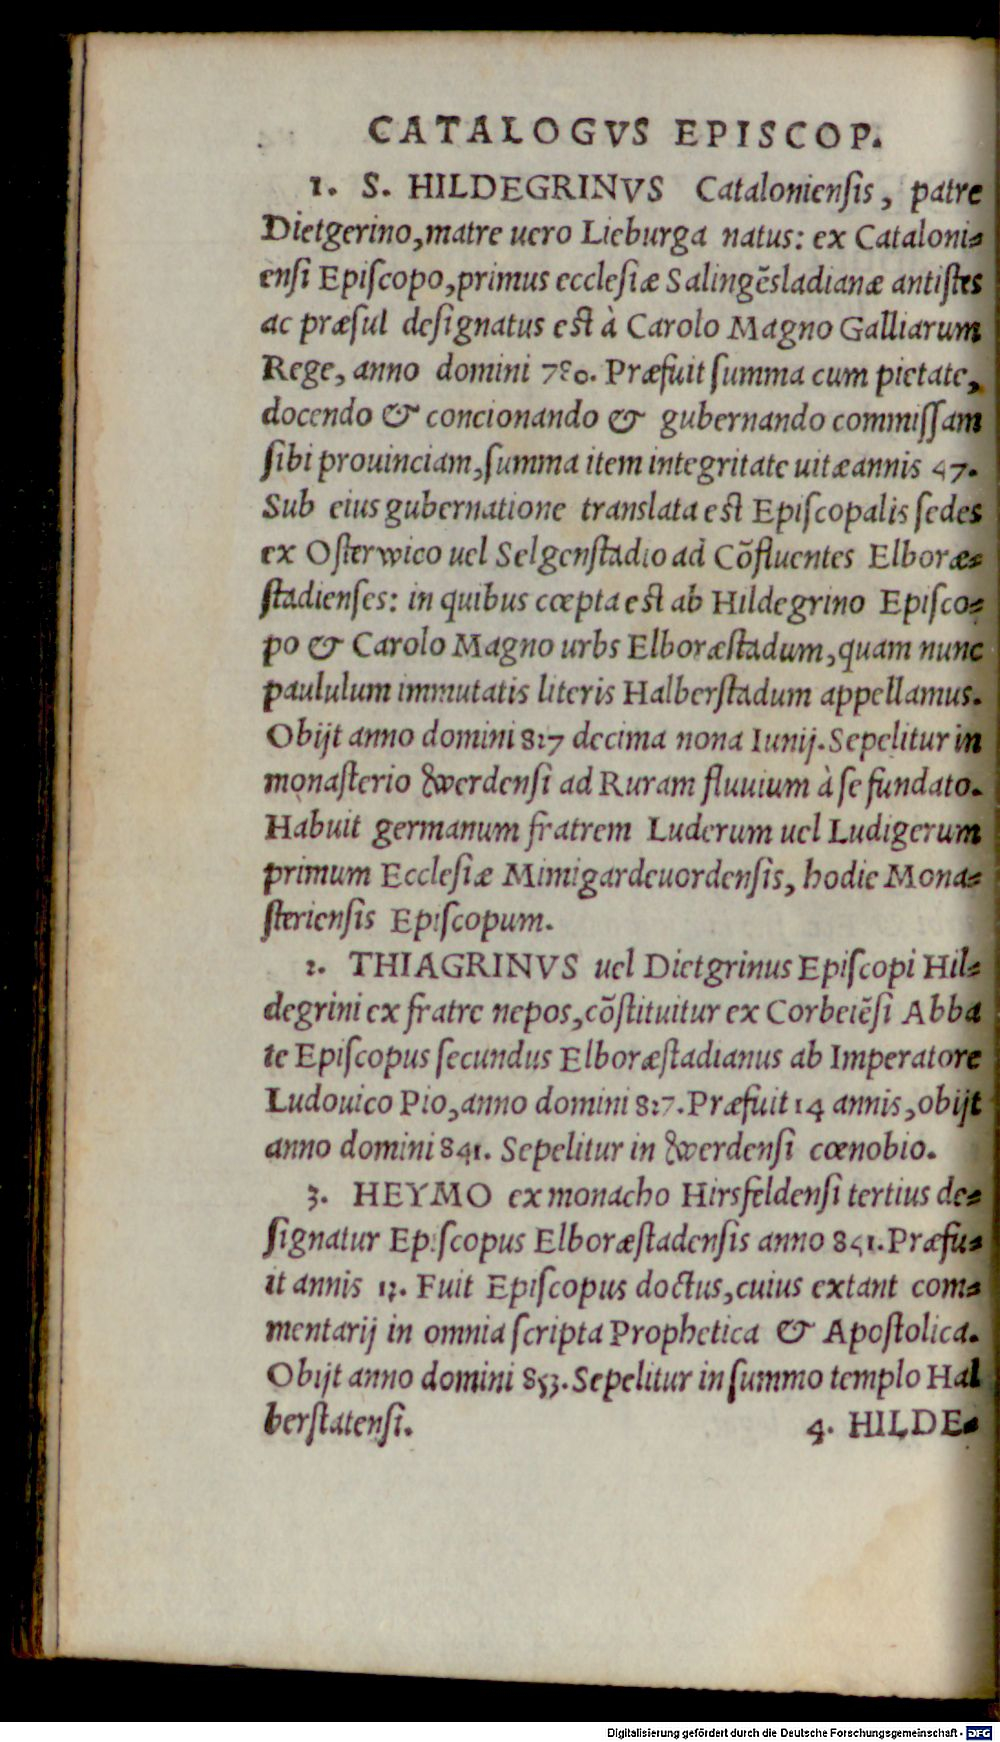 CATALOGVS EPISCOP.
1. S. HILDEGRINVS Cataloniensis, patre
Dietgerino, matre uero Lieburga natus: ex Cataloni-
ensi Episcopo, primus ecclesiæ Salingẽsladianæ antistes
ac præsul designatus est à Carolo Magno Galliarum
Rege, anno domini 780. Præfuit summa cum pietate,
docendo & concionando & gubernando commissam
sibi prouinciam, summa item integritate uitæ annis 47.
Sub eius gubernatione translata est Episcopalis sedes
ex Osterwico uel Selgenstadio ad Cõfluentes Elboræ-
stadienses: in quibus cœpta est ab Hildegrino Episco-
po & Carolo Magno urbs Elboræstadum, quam nunc
paululum immutatis literis Halberstadum appellamus.
Obijt anno domini 827 decima nona Iunij. Sepelitur in
monasterio Werdensi ad Ruram fluuium à se fundato.
Habuit germanum fratrem Luderum uel Ludigerum
primum Ecclesiæ Mimigardeuordensis, hodie Mona-
steriensis Episcopum.
2. THIAGRINVS uel Dietgrinus Episcopi Hil-
degrini ex fratre nepos, cõstituitur ex Corbeiẽsi Abba
te Episcopus secundus Elboræstadianus ab Imperatore
Ludouico Pio, anno domini 827. Præfuit 14 annis, obijt
anno domini 841. Sepelitur in Werdensi cœnobio.
3. HEYMO ex monacho Hirsfeldensi tertius de-
signatur Episcopus Elboræstadensis anno 841. Præfu-
it annis 13. Fuit Episcopus doctus, cuius extant com-
mentarij in omnia scripta Prophetica & Apostolica.
Obijt anno domini 853. Sepelitur in summo templo Hal
berstatensi. 4. HILDE-
Digitalisierung gefördert durch die Deutsche Forschungsgemeinschaft - DFG